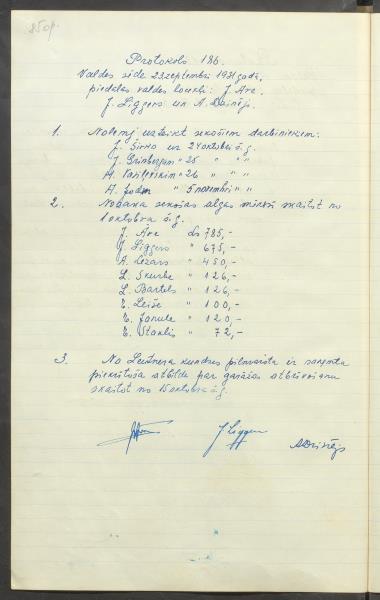 850p.
Protokols 186.
Valdes sēde 23 septembrī 1931 gadā,
piedalās valdes locekļi: J. Āre
J. Liggers un A. Dzinējs.
1. Nolemj uzteikt sekošiem darbiniekiem:
J. Širko uz 24 oktobri š.g.
J. Grinbergam " 25 " " "
A. Vasiļevskim " 26 " " "
A. " 5 novembri " "
2. Nosaka sekošas algas mēnesī skaitot no
1 oktobra š.g.
J. Āre Ls 785,-
J. Liggers " 675,-
A. Lezars " 450,-
L. Skurbe " 126,-
L. Bartels " 126,-
E. Leiše " 100,-
E. Janule " 120,-
E. Stoklis " 72,-
3. No kundzes pilnvarota ir saņemta
piekrītoša atbilde par garāžas atbrīvošanu
skaitot no 15 oktobra š.g.
J Liggers
ADzinējs